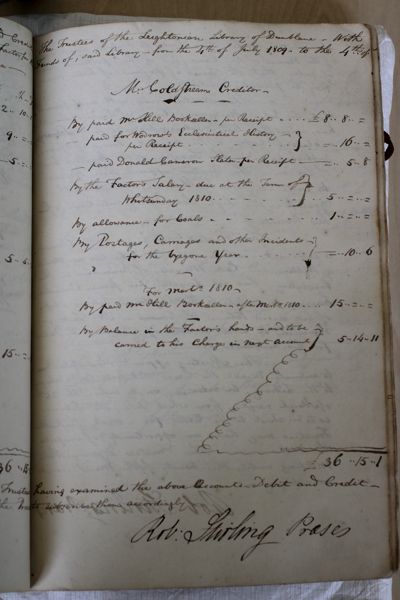 The Trustees of the Leightonian Library of Dunblane - With
Funds of, said Library - from the 4th of July 1809 - to the 4th of
Mr Coldstream Creditor -
By paid Mr Hill Bookseller - per Receipt £8 .. 8 .. =
- paid for Wodrow's Ecclesiastical History
per Receipt = .. 16 .. =
- paid Donald Cameron Slater per Receipt = .. 5 .. 8
By the Factor's Salary - due at the Term of
Whitsunday 1810 5 .. = .. =
By allowance - for Coals 1 .. = .. =
By Postages, Carriages and other Incidents
for the bygone Year = .. 10 .. 6
For 1810 -
By paid Mr Hill Bookseller - 1810 15 .. = .. =
By Balance in the Factor's hands - and to be
carried to his Charge in next account 5 .. 14 .. 11
£ 36 .. 15 .. 1
Trustees having examined the above Accounts - Debit and Credit -
accordingly
Rob: Stirling Præses